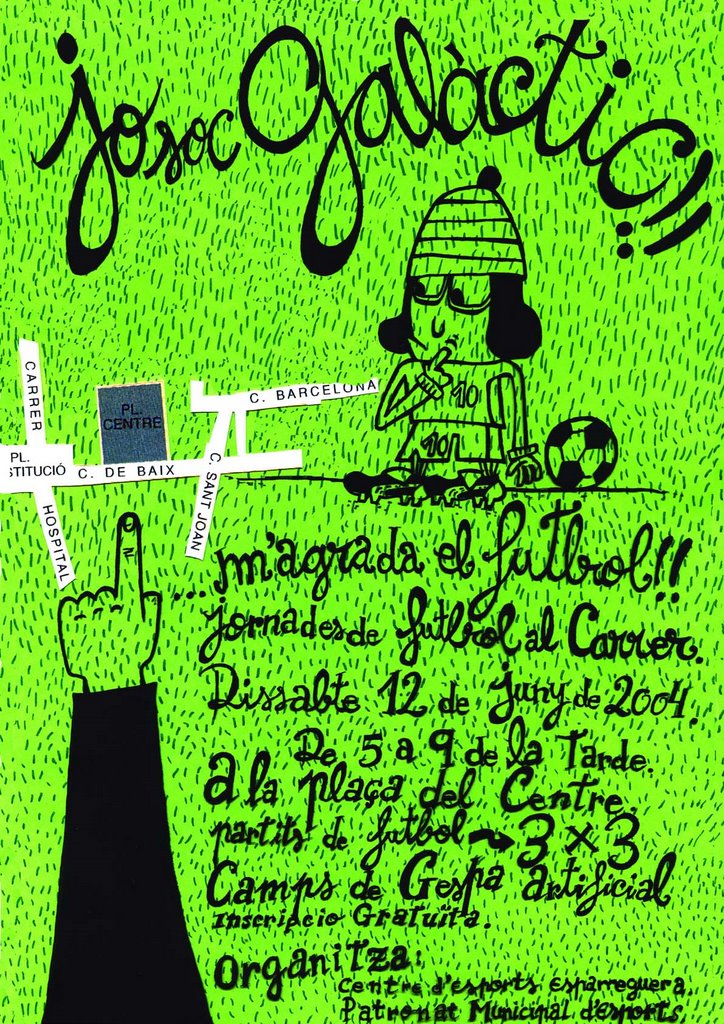 jo soc Galàctic!!
CARRER
PL.
CENTRE
C. BARCELONA
PL.
STITUCIÓ
C. DE BAIX
C. SANT JOAN
HOSPITAL
10
10
...m'agrada el futbol!!
jornades de futbol al Carrer.
Dissabte 12 de juny de 2004.
De 5 a 9 de la Tarde.
a la plaça del Centre.
partits de futbol → 3 x 3
Camps de Gespa artificial
Inscripcio Gratuïta.
Organitza:
Centre d'esports Esparreguera.
Patronat Municipal d'esports.